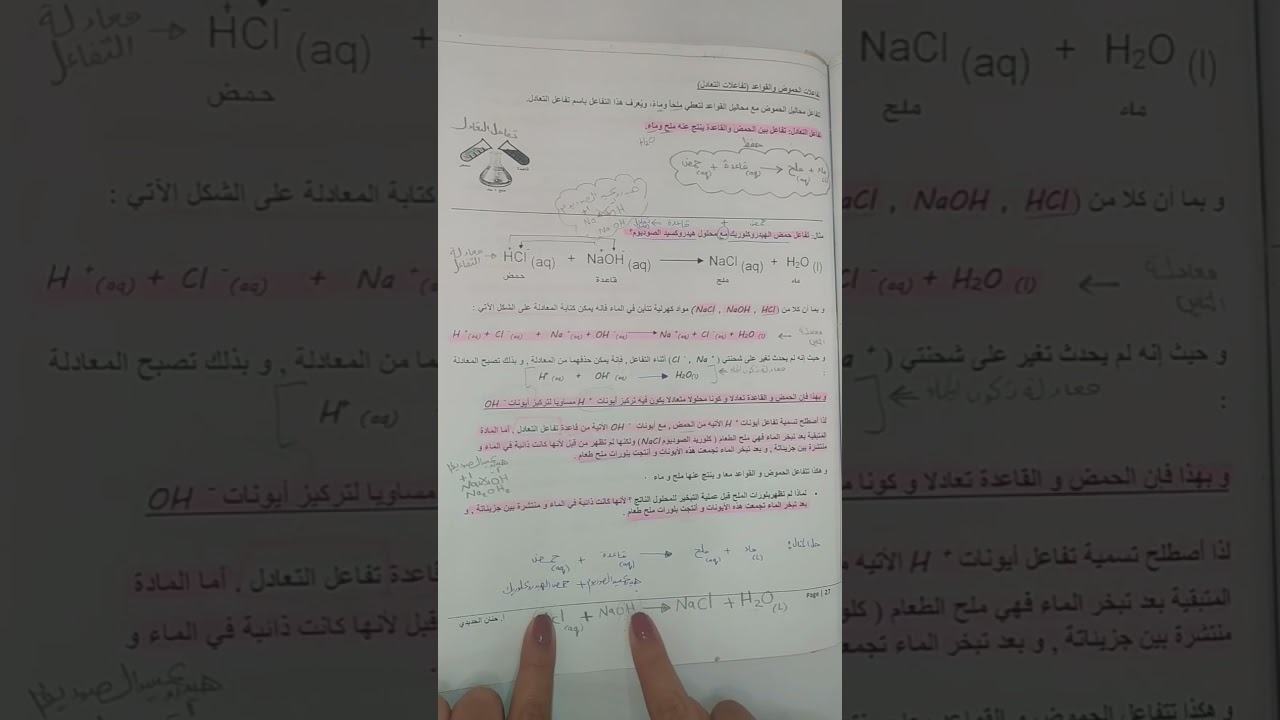 تفاعلات الحموض والقواعد (تفاعلات التعادل)
تتفاعل محاليل الحموض مع محاليل القواعد لتعطي ملحاً وماءً، ويُعرف هذا التفاعل باسم تفاعل التعادل.
تفاعل التعادل: تفاعل بين الحمض والقاعدة ينتج عنه ملح وماء.
H₂O
تفاعل التعادل
حفظ
حمض (aq) + قاعدة (aq) → ملح (aq) + ماء (l)
مثال: تفاعل حمض الهيدروكلوريك مع محلول هيدروكسيد الصوديوم؟
معادلة التفاعل → HCl (aq) + NaOH (aq) → NaCl (aq) + H₂O (l)
حمض قاعدة ملح ماء
و بما أن كلا من (NaCl , NaOH , HCl) مواد كهرلية تتأين في الماء فانه يمكن كتابة المعادلة على الشكل الآتي :
H⁺(aq) + Cl⁻(aq) + Na⁺(aq) + OH⁻(aq) → Na⁺(aq) + Cl⁻(aq) + H₂O (l) ← معادلة التأين
و حيث إنه لم يحدث تغير على شحنتي (Cl⁻ , Na⁺) أثناء التفاعل , فانه يمكن حذفهما من المعادلة , و بذلك تصبح المعادلة :
H⁺(aq) + OH⁻(aq) → H₂O(l) ← معادلة تكون الماء
و بهذا فان الحمض و القاعدة تعادلا و كونا محلولا متعادلا يكون فيه تركيز أيونات H⁺ مساويا لتركيز أيونات OH⁻
لذا أصطلح تسمية تفاعل أيونات H⁺ الآتيه من الحمض , مع أيونات OH⁻ الآتية من قاعدة تفاعل التعادل , أما المادة
المتبقية بعد تبخر الماء فهي ملح الطعام ( كلوريد الصوديوم NaCl) ولكنها لم تظهر من قبل لأنها كانت ذائبة في الماء و
منتشرة بين جزيئاتة , و بعد تبخر الماء تجمعت هذه الأيونات و أنتجت بلورات ملح طعام .
و هكذا تتفاعل الحموض و القواعد معا و ينتج عنها ملح و ماء .
• لماذا لم تظهر بلورات الملح قبل عملية التبخير للمحلول الناتج ؟ لأنها كانت ذائبة في الماء و منتشرة بين جزيئاتة , و
بعد تبخر الماء تجمعت هذه الأيونات و أنتجت بلورات ملح طعام .
حل المثال:
حمض (aq) + قاعدة (aq) → ملح (aq) + ماء (l)
حمض الهيدروكلوريك + هيدروكسيد الصوديوم
Cl (aq) + NaOH → NaCl + H₂O (l)
Page | 27
أ. حنان الحديدي